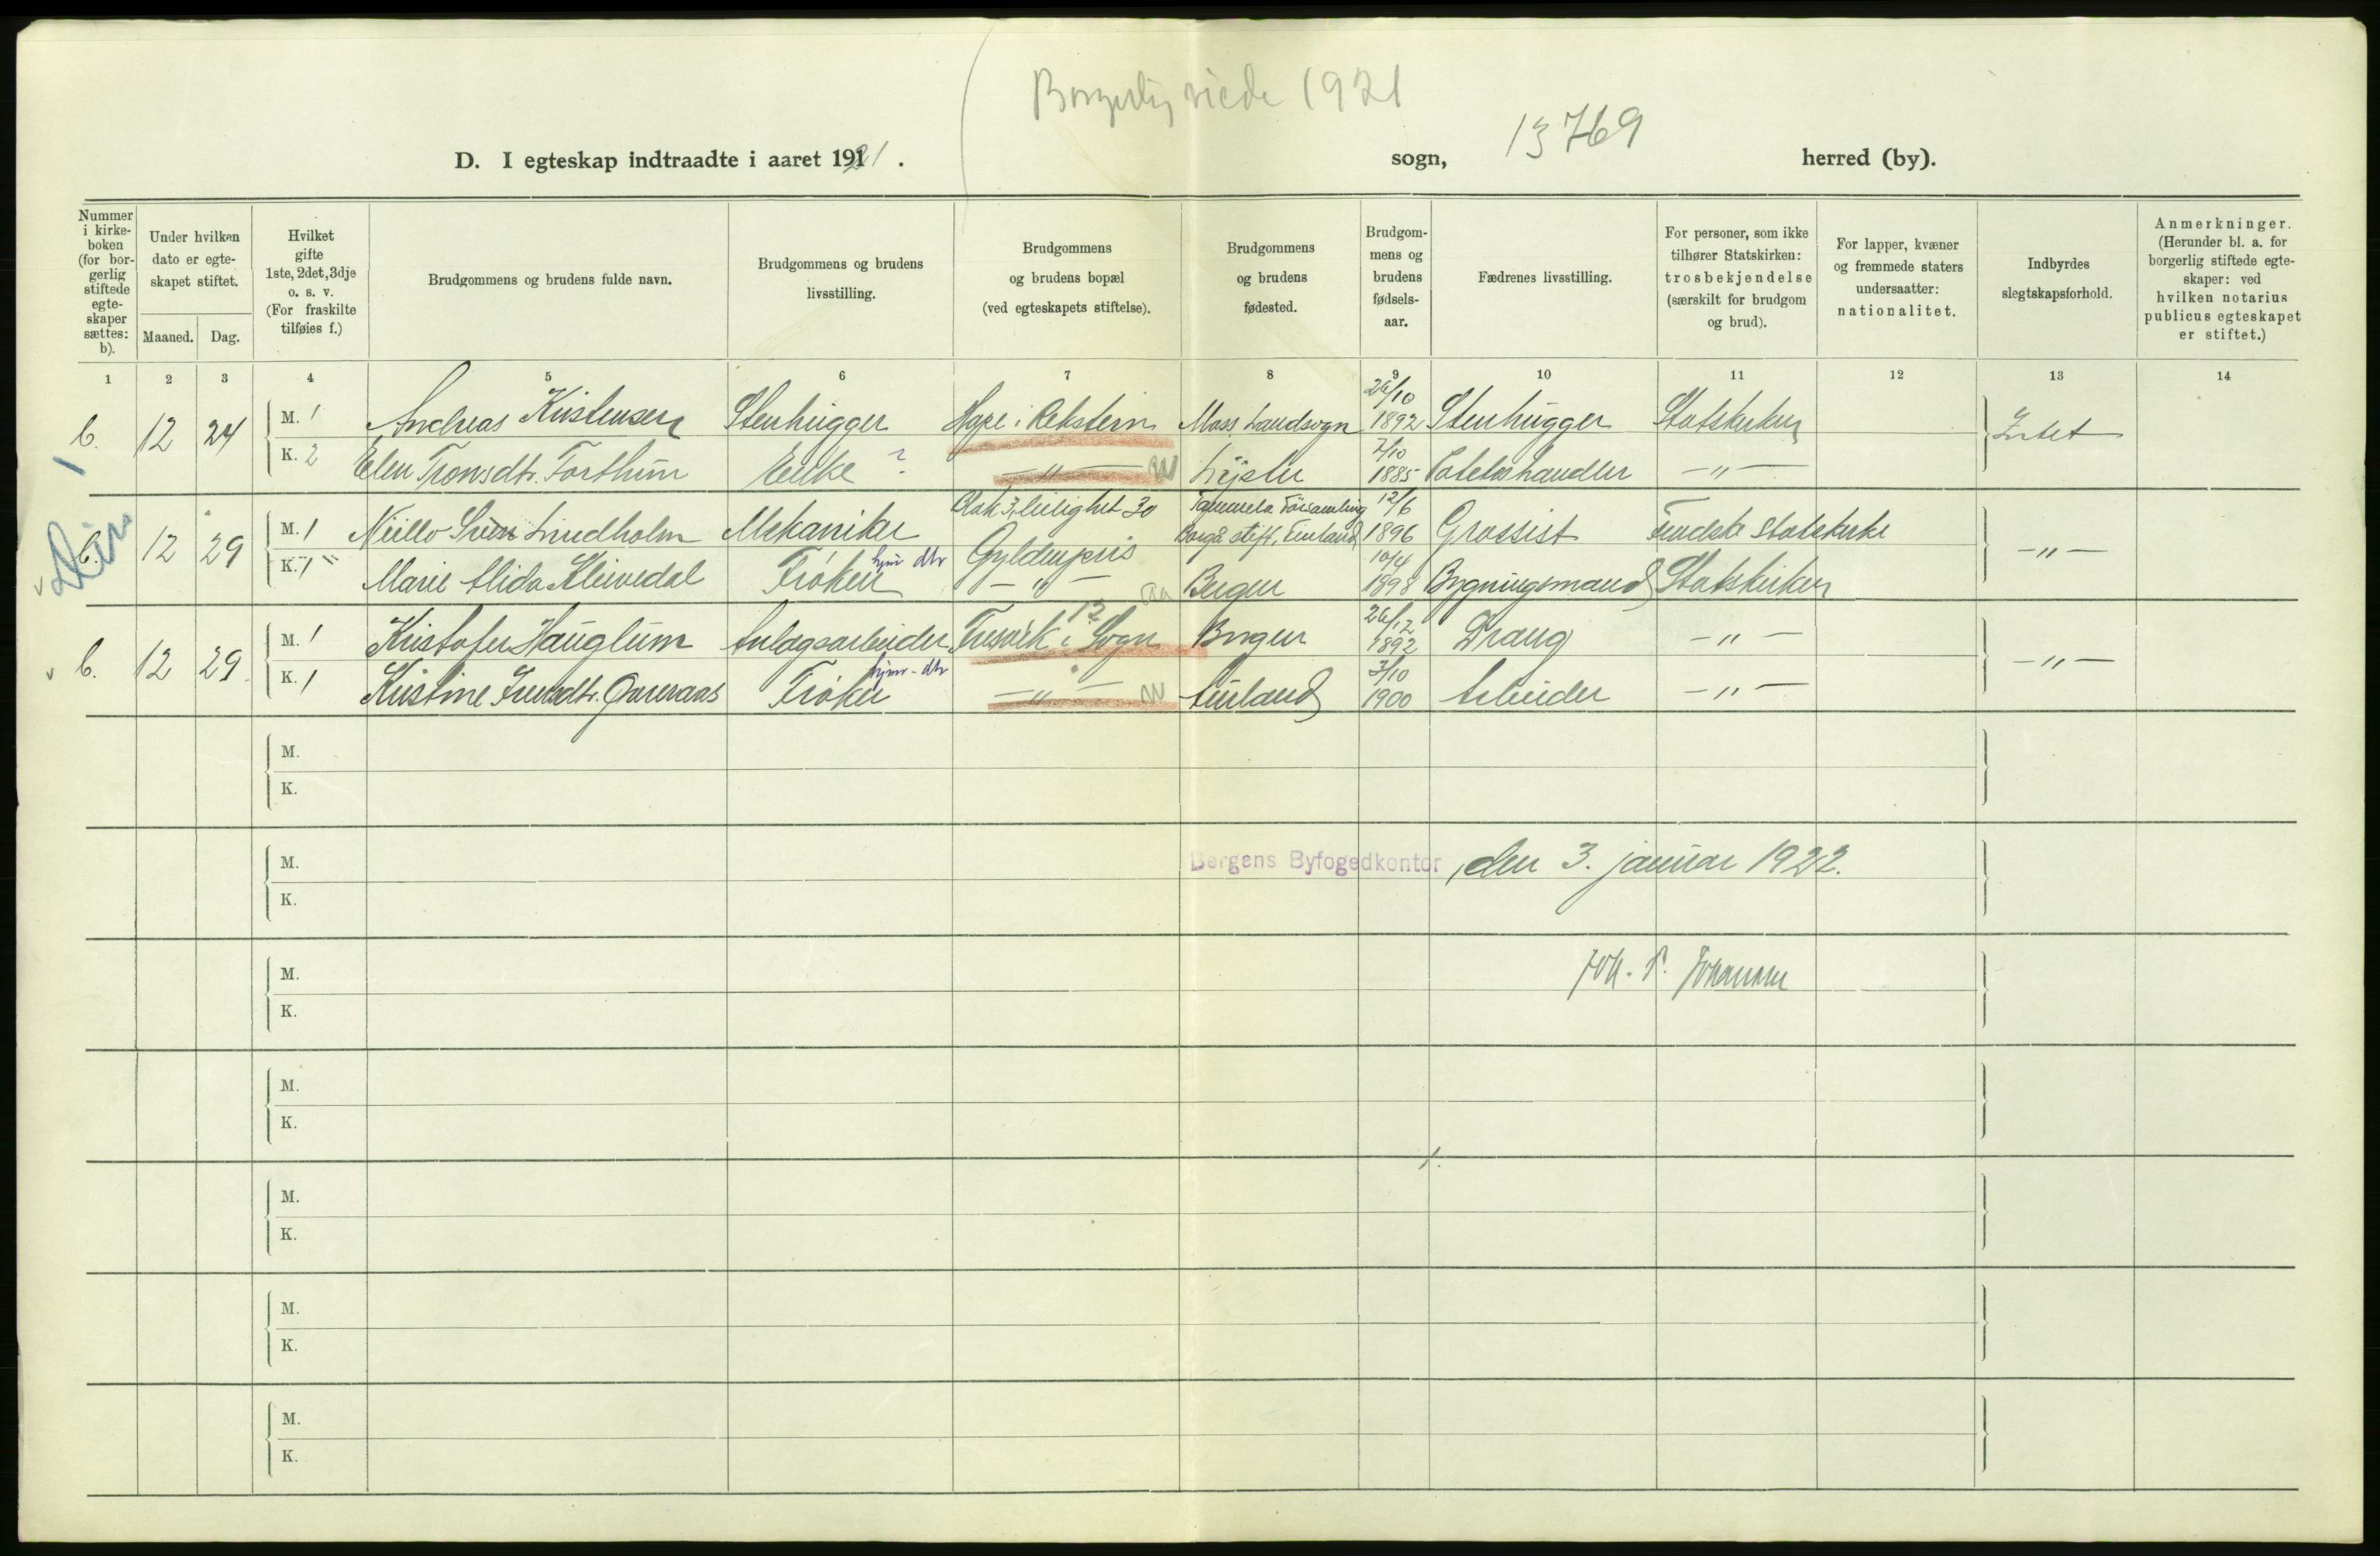 Borgerlig viede 1921
13769
D. I egteskap indtraadte i aaret 1921. sogn, herred (by).
Nummer i kirke-boken (for bor-gerlig stiftede egte-skaper sættes: b).
Under hvilken dato er egte-skapet stiftet.
Maaned. Dag.
Hvilket gifte 1ste, 2det, 3dje o. s. v. (For fraskilte tilføies f.)
Brudgommens og brudens fulde navn.
Brudgommens og brudens livsstilling.
Brudgommens og brudens bopæl (ved egteskapets stiftelse).
Brudgommens og brudens fødested.
Brudgom-mens og brudens fødsels-aar.
Fædrenes livsstilling.
For personer, som ikke tilhører Statskirken: trosbekjendelse (særskilt for brudgom og brud).
For lapper, kvæner og fremmede staters undersaatter: nationalitet.
Indbyrdes slegtskapsforhold.
Anmerkninger. (Herunder bl. a. for borgerlig stiftede egte-skaper: ved hvilken notarius publicus egteskapet er stiftet.)
1 2 3 4 5 6 7 8 9 10 11 12 13 14
b. 12 24 M. 1 Andreas Kristensen Stenhugger Hope i Rekstein Moss landsogn 26/10 1892 Stenhugger Statskirken Intet
K. 2 Elen Tronsdtr. Forthun Enke ? —"— Lyster 7/10 1885 handler —"—
b. 12 29 M. 1 Niillo Sven Lindholm Mekaniker Blok 3, leilighet 30 Tammela Församling Borgå stift, Finland 12/6 1896 Grossist Finske Statskirke —"—
K. 1 Marie Alida Kleivedal Frøken hjm dtr Gyldenpris —"— Bergen 10/4 1898 Bygningsmand Statskirken
b. 12 29 M. 1 Kristofer Hauglum Anlagsarbeider Fresvik i Sogn Borgen 26/12 1892 Dræng —"— —"—
K. 1 Kristine Frøken hjm - dtr —"— Aurland 3/10 1900 Arbeider —"—
M.
K.
M.
Bergens Byfogedkontor, den 3. januar 1922.
K.
M.
Joh. P. Johannsen
K.
M.
K.
M.
K.
M.
K.
M.
K.